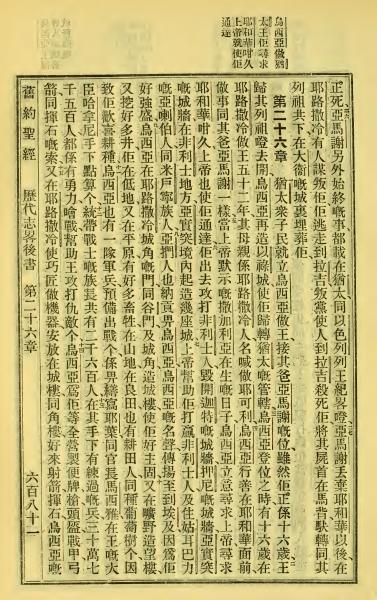 烏西亞做猶
太王佢尋求
耶和華咁久
上帝就使佢
通達
正死亞馬謝另外始終嘅事都載在猶太同以色列列王紀畧噔亞馬謝丟棄耶和華以後在
耶路撒冷有人謀叛佢佢逃走到拉吉叛黨使人到拉吉殺死佢將其屍首在馬背馱轉同其
列祖共下在大衞嘅城裏埋葬佢
第二十六章 猶太衆子民就立烏西亞做王接其爸亞馬謝嘅位雖然佢正係十六歲王
歸其列祖噔去開烏西亞再造以祿城使佢歸轉猶太嘅管轄烏西亞登位之時有十六歲在
耶路撒冷做王五十二年其母親係耶路撒冷人名喊做耶可利烏西亞行善在耶和華面前
做事同其爸亞馬謝一樣當上帝默示嘅撒加利亞在生嘅日子烏西亞立意尋求上帝尋求
耶和華咁久上帝也使佢通達佢出去攻打非利士人毀開迦特嘅城牆押尼嘅城牆亞實突
嘅城牆在非利士地方亞實突境內起造幾座城上帝幫助佢打贏非利士人及住姑耳巴力
嘅亞喇伯人同米戶甯族人亞捫人也納貢畀烏西亞烏西亞嘅名聲傳揚至到埃及因爲佢
好強盛烏西亞在耶路撒冷城角嘅門同谷門及城角造城樓使佢好主固又在曠野造望樓
又挖好多井佢在低地又在平原有好多畜牲在山地在良田也有耕田人同種葡萄樹個因
致佢歡喜耕種烏西亞也有一隊軍兵預備出戰個係畀繕寫耶業同官長馬西雅在王嘅大
臣哈拿尼手下點算个統帶戰士嘅族長共有二千六百人在其手下有練過嘅兵三十萬七
千五百人都係有勇力噲戰幫助王攻打仇敵个烏西亞爲佢等全營製便牌槍頭盔戰甲弓
箭同揮石嘅索又在耶路撒冷使巧匠做機器安放在城樓同角樓好來射箭揮石烏西亞嘅
舊約聖經 歷代志畧後書 第二十六章 六百八十一